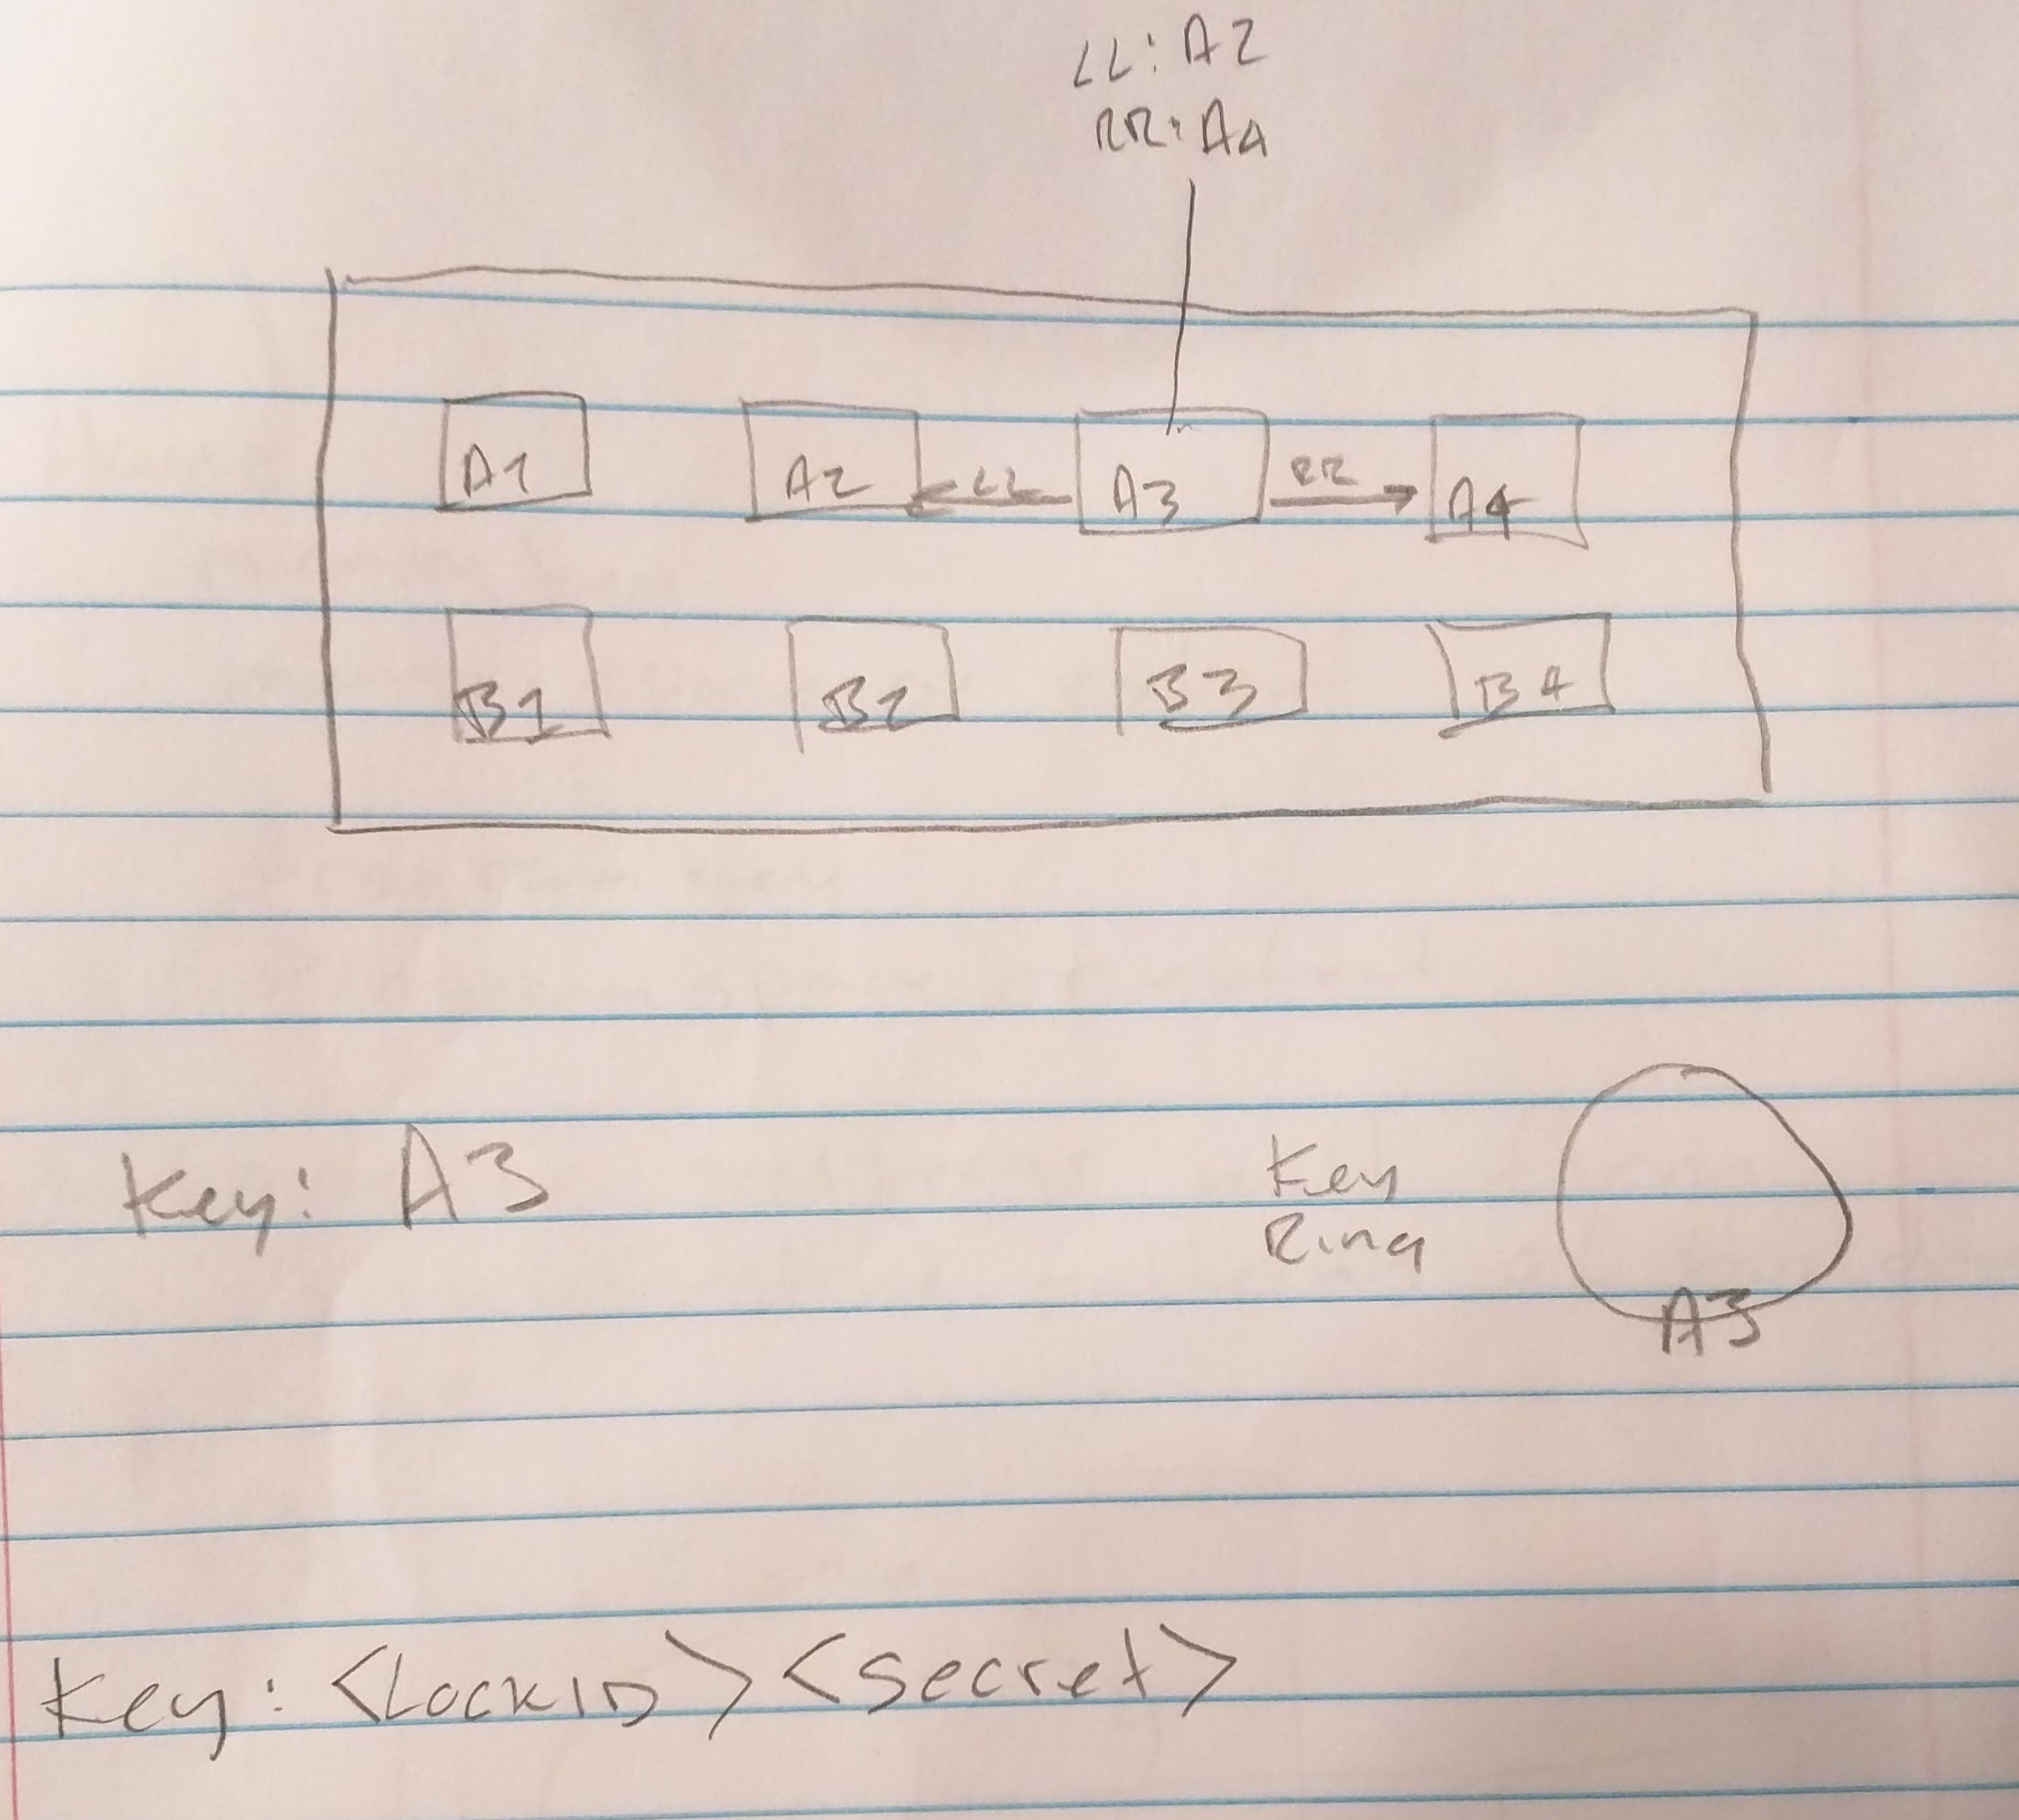 LL: A2
RR: A4
A1 A2 LL A3 RR A4
B1 B2 B3 B4
Key: A3
Key
Ring
A3
Key: <LockID> <secret>